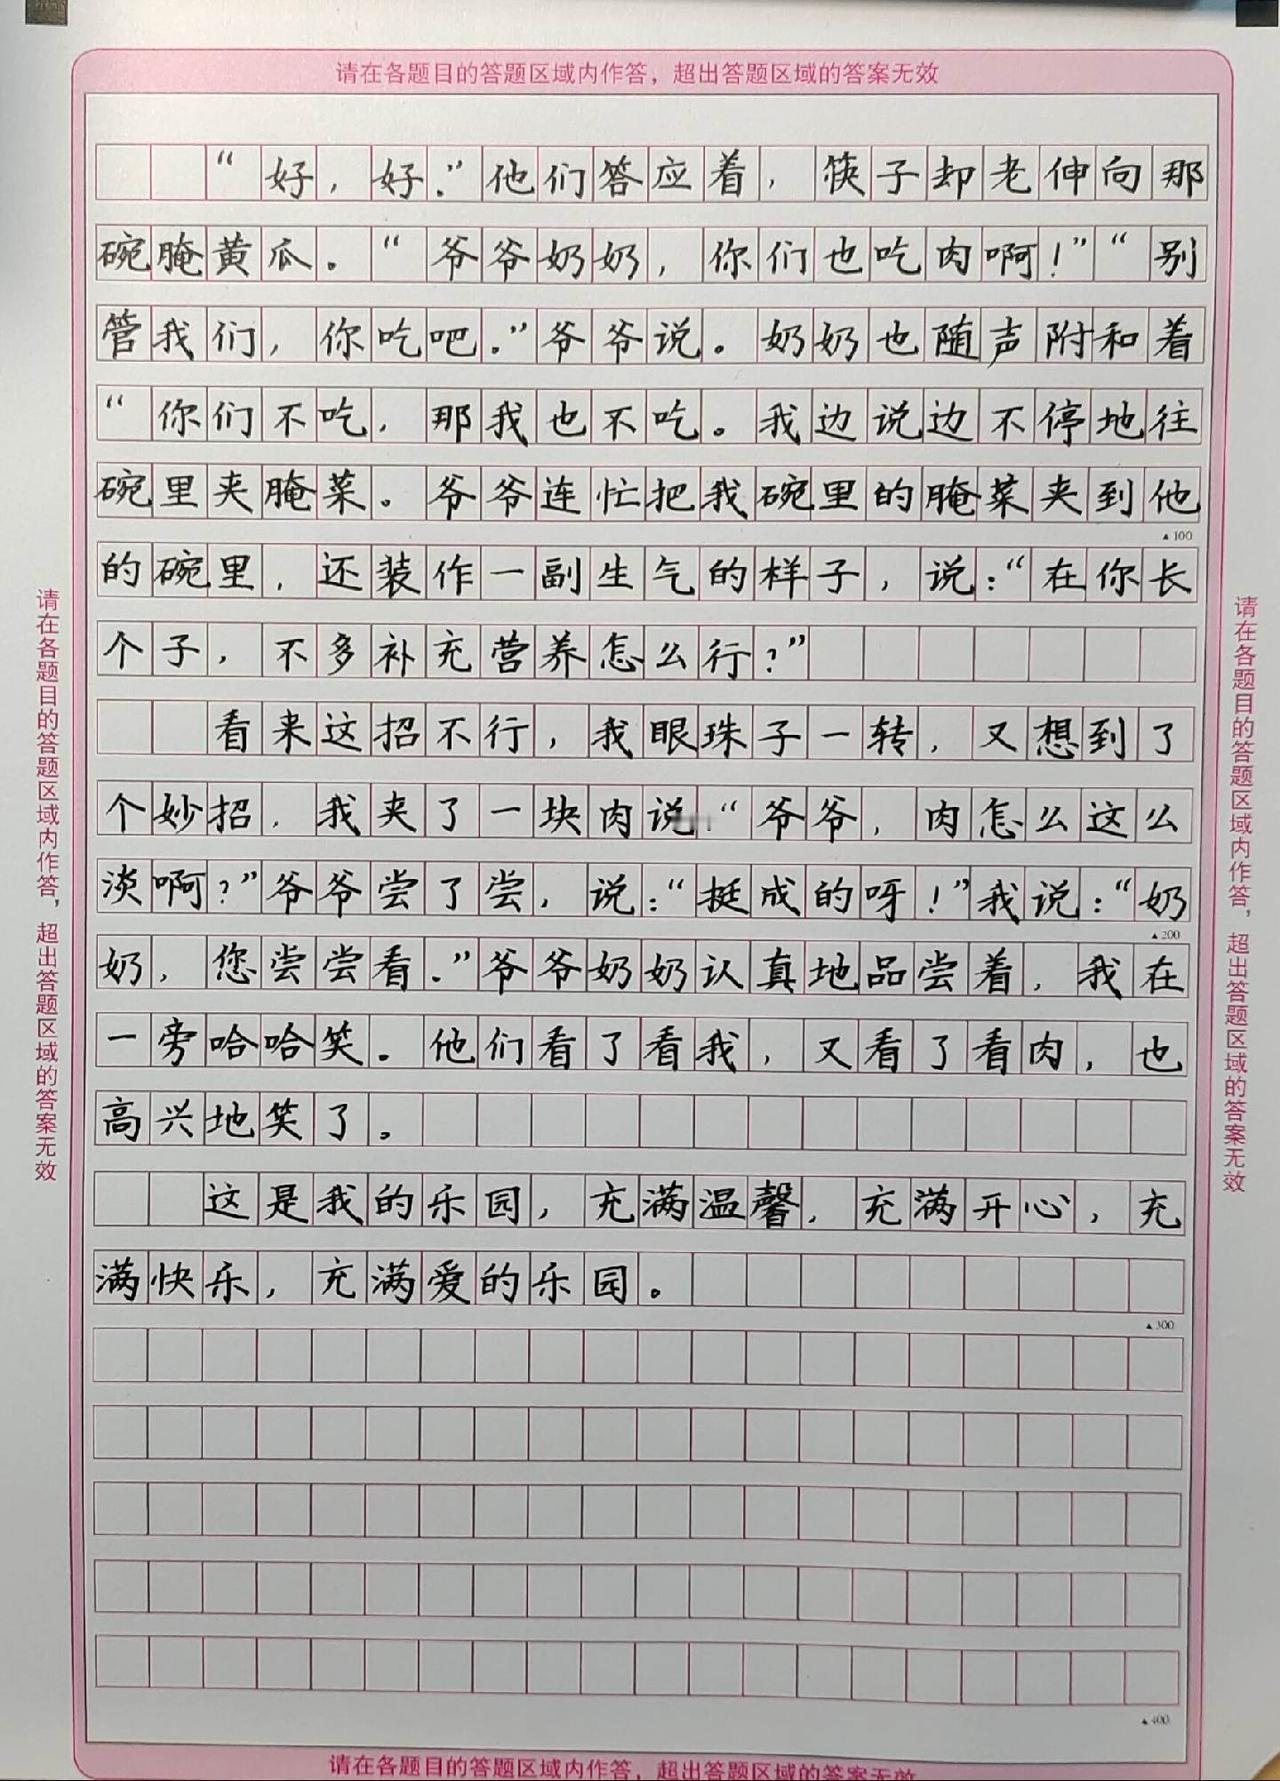 请在各题目的答题区域内作答，超出答题区域的答案无效
“好，好.”他们答应着，筷子却老伸向那
碗腌黄瓜。“爷爷奶奶，你们也吃肉啊！”“别
管我们，你吃吧.”爷爷说。奶奶也随声附和着
“你们不吃，那我也不吃。我边说边不停地往
碗里夹腌菜。爷爷连忙把我碗里的腌菜夹到他
▲100
的碗里，还装作一副生气的样子，说：“在你长
个子，不多补充营养怎么行？”
看来这招不行，我眼珠子一转，又想到了
个妙招，我夹了一块肉说“爷爷，肉怎么这么
淡啊？”爷爷尝了尝，说：“挺成的呀！”我说：“奶
▲200
奶，您尝尝看.”爷爷奶奶认真地品尝着，我在
一旁哈哈笑。他们看了看我，又看了看肉，也
高兴地笑了。
这是我的乐园，充满温馨，充满开心，充
满快乐，充满爱的乐园。
▲300
▲400
请在各题目的答题区域内作答，超出答题区域的答案无效
请在各题目的答题区域内作答，超出答题区域的答案无效
请在各题目的答题区域内作答，超出答题区域的答案无效